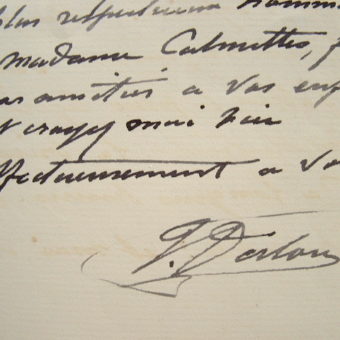 plus respectueux homma
madame Calmettes, f
amitiés a vos enf
t croyez moi bien
ffectueusement a vo